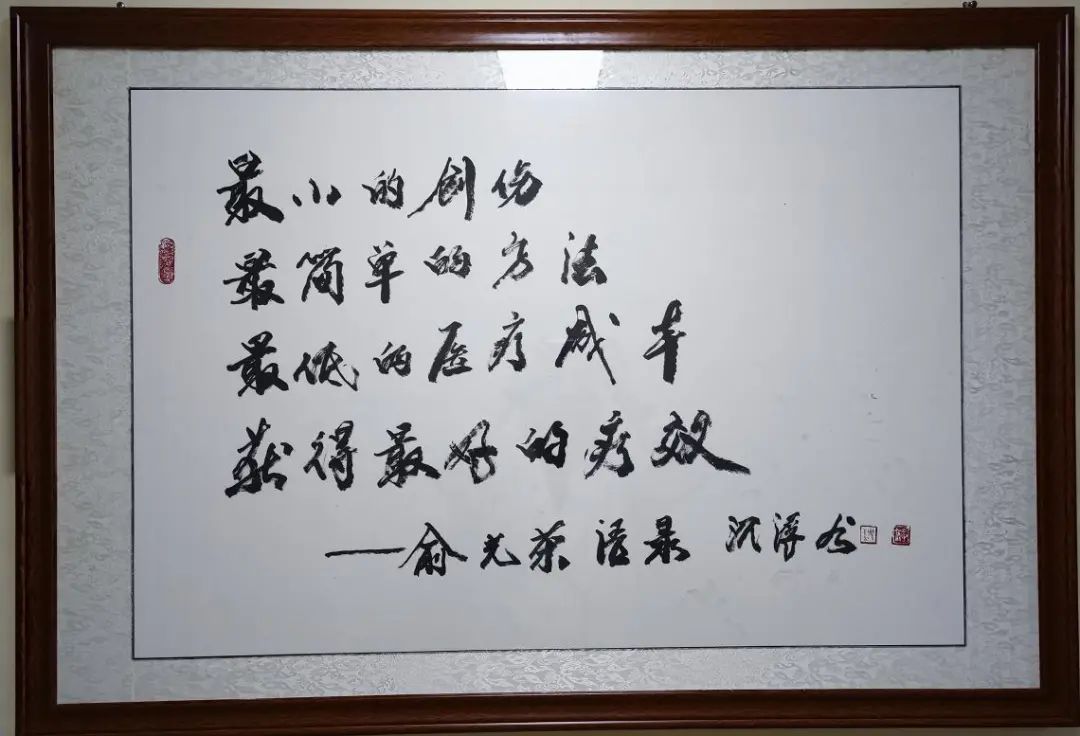 最小的创伤
最简单的方法
最低的医疗成本
获得最好的疗效
——俞光荣语录 沉浮书